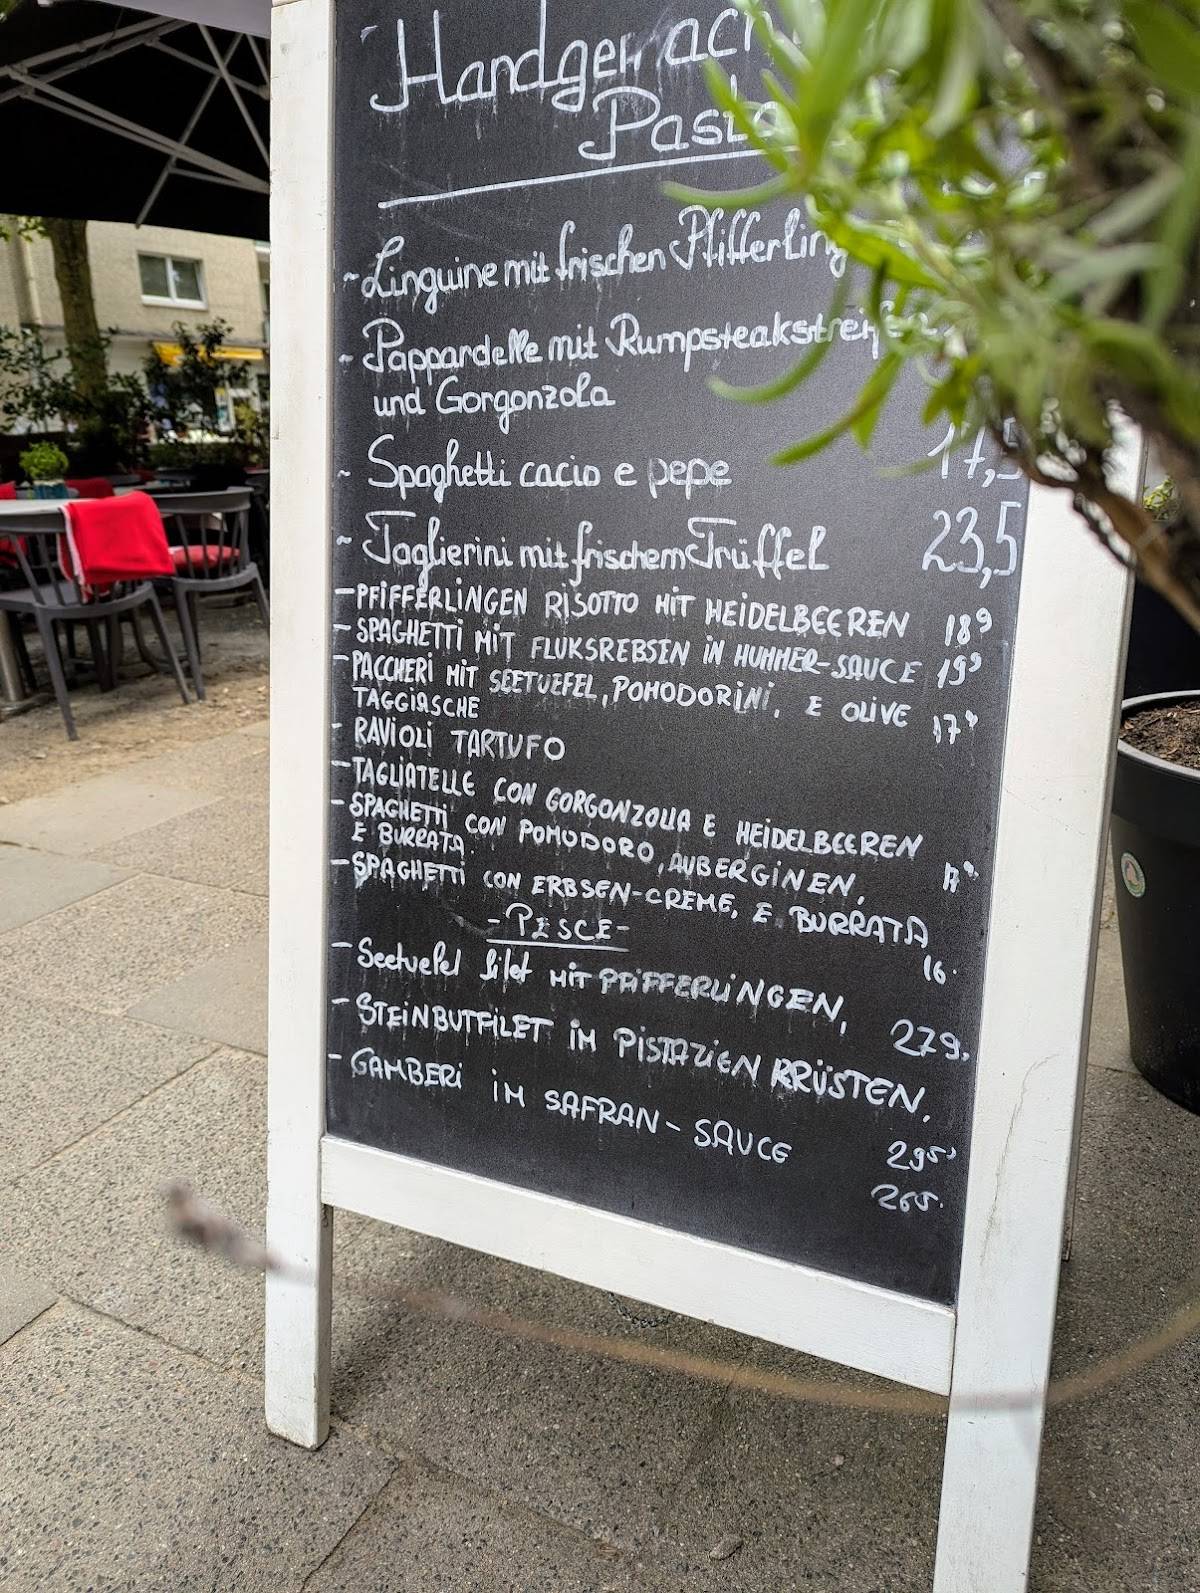 Handgemach
Pasta
~ Linguine mit frischen Pfifferling
~ Pappardelle mit Rumpsteakstreife
und Gorgonzola
~ Spaghetti cacio e pepe 17,5
~ Taglierini mit frischem Trüffel 23,5
- PFIFFERLINGEN RISOTTO MIT HEIDELBEEREN 18⁹
- SPAGHETTI MIT FLUKSREBSEN IN HUMMER-SAUCE 19⁵
- PACCHERI MIT SEETUEFEL, POMODORINI, E OLIVE
TAGGIASCHE 17⁹
- RAVIOLI TARTUFO
- TAGLIATELLE CON GORGONZOLLA E HEIDELBEEREN
- SPAGHETTI CON POMODORO, AUBERGINEN,
E BURRATA.
- SPAGHETTI CON ERBSEN-CREME, E BURRATA
16.
- PESCE -
- Seetuefel filet MIT PFIFFERLINGEN, 27⁹.
- STEINBUTFILET IM PISTAZIEN KRÜSTEN,
29⁵
- GAMBERI IM SAFRAN - SAUCE
26⁵.